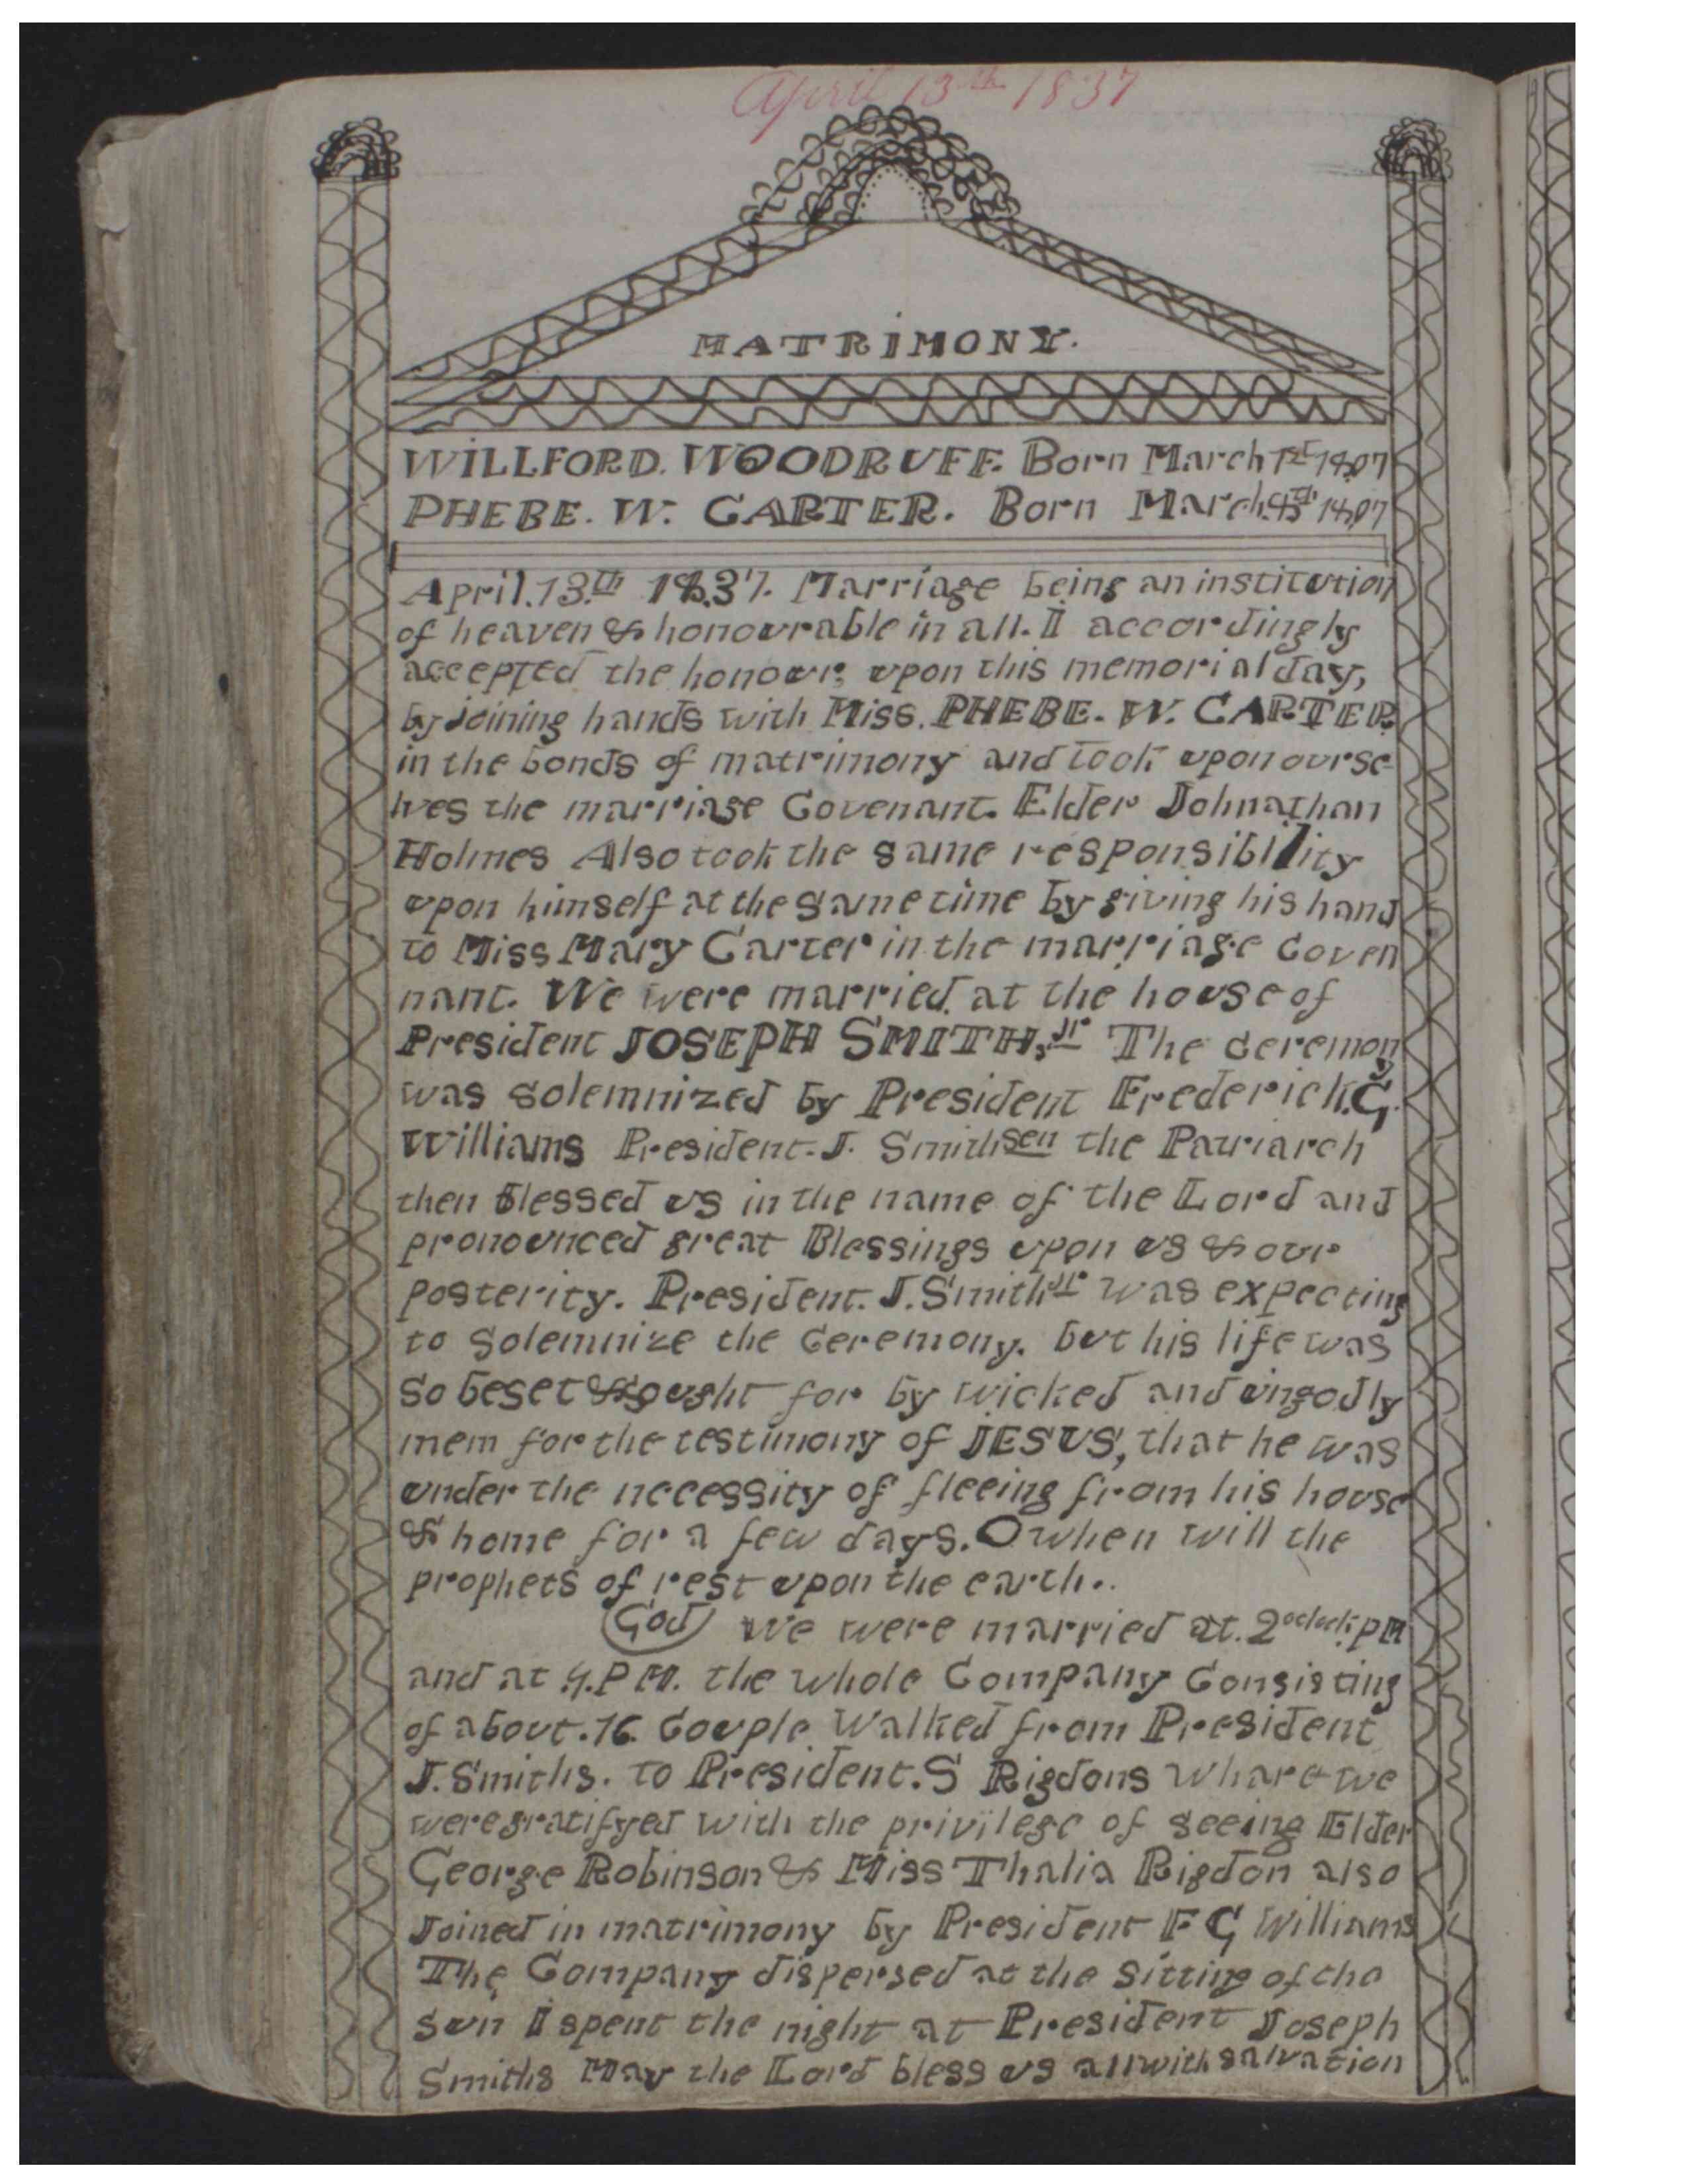 April 13th 1837
MATRIMONY.
WILLFORD. WOODRUFF. Born March 1st 1807
PHEBE. W. CARTER. Born March 1807
April. 13th 1837. Marriage being an institution
of heaven & honourable in all. I accordingly
accepted the honour, upon this memorial day,
by joining hands with Miss. PHEBE. W. CARTER
in the bonds of matrimony and took upon ourse-
lves the marriage Covenant. Elder Johnathan
Holmes Also took the same responsibility
upon himself at the same time by giving his hand
to Miss Mary Carter in the marriage Coven
nant. We were married at the house of
President JOSEPH SMITH, Jr The Ceremony
was Solemnized by President Frederick. G.
Williams President. J. Smith sen the Patriarch
then Blessed us in the name of the Lord and
pronounced great Blessings upon us & our
posterity. President. J. Smith Jr was expecting
to Solemnize the Ceremony. but his life was
so beset & sought for by wicked and ungodly
mem for the testimony of JESUS, that he was
under the necessity of fleeing from his house
& home for a few days. O when will the
prophets of rest upon the earth..
God We were married at. 2 oclock. PM
and at 4. PM. the whole Company Consisting
of about. 16. Couple Walked from President
J. Smiths. to President. S Rigdons whare we
were gratifyed with the privilege of seeing Elder
George Robinson & Miss Thalia Rigdon also
Joined in matrimony by President F G Williams
The Company dispersed at the Sitting of the
sun I spent the night at President Joseph
Smiths May the Lord bless us all with salvation